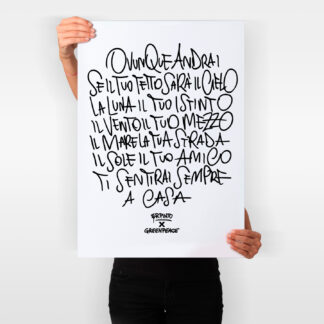 OVUNQUE ANDRAI
SE IL TUO TETTO SARÀ IL CIELO
LA LUNA IL TUO ISTINTO
IL VENTO IL TUO MEZZO
IL MARE LA TUA STRADA
IL SOLE IL TUO AMICO
TI SENTIRAI SEMPRE
A CASA
X
GREENPEACE